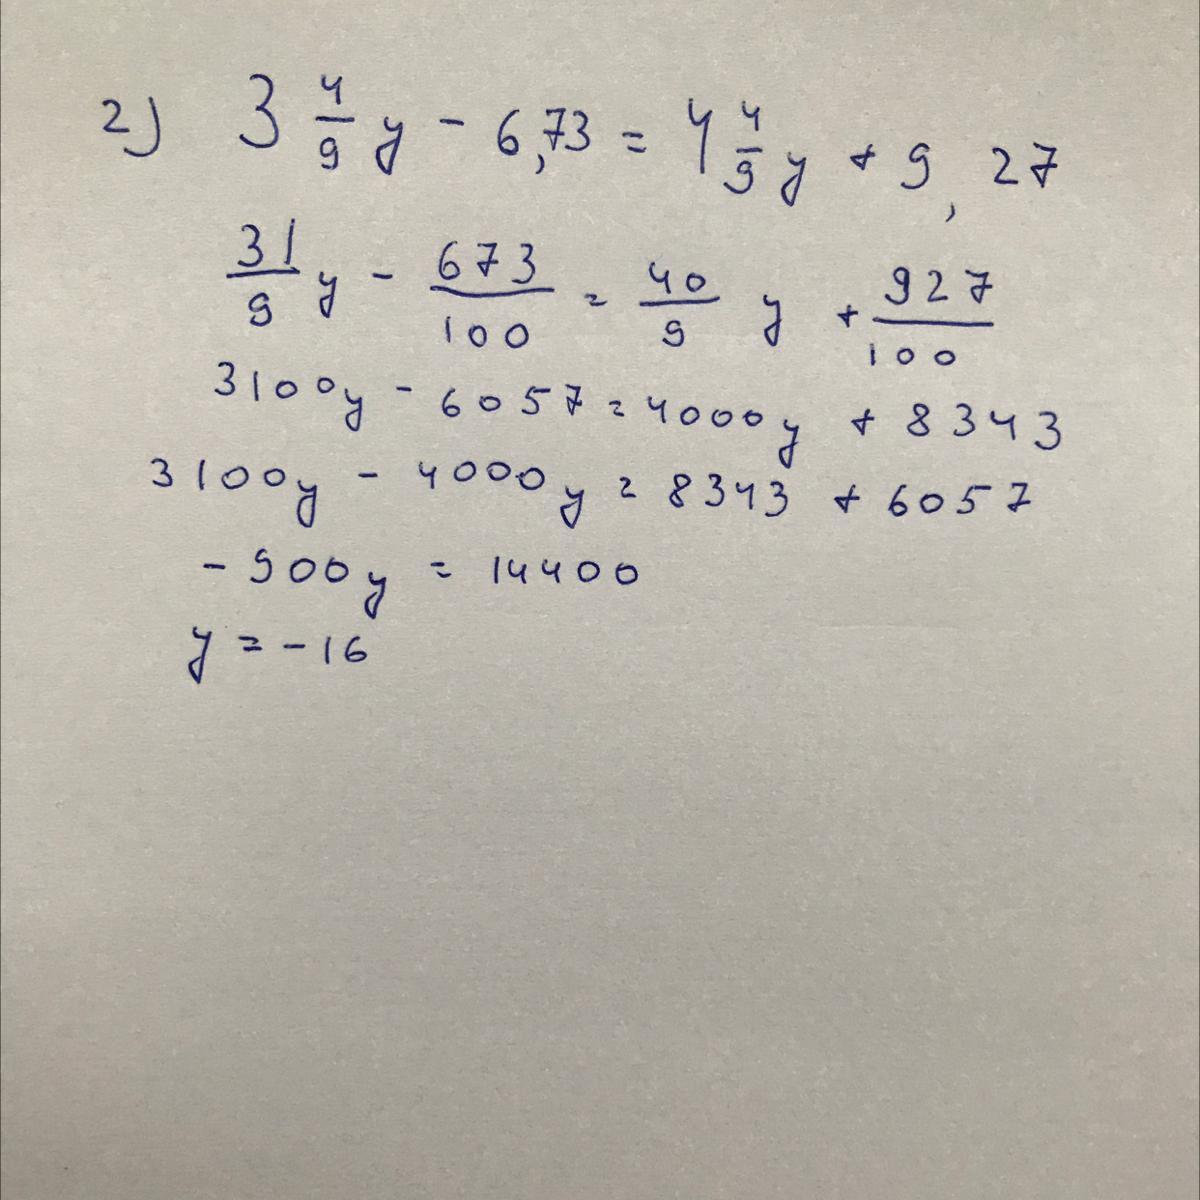 2) 3 4/9 y - 6,73 = 4 4/9 y + 9,27
31/9 y - 673/100 = 40/9 y + 927/100
3100y - 6057 = 4000y + 8343
3100y - 4000y = 8343 + 6057
- 900y = 14400
y = - 16